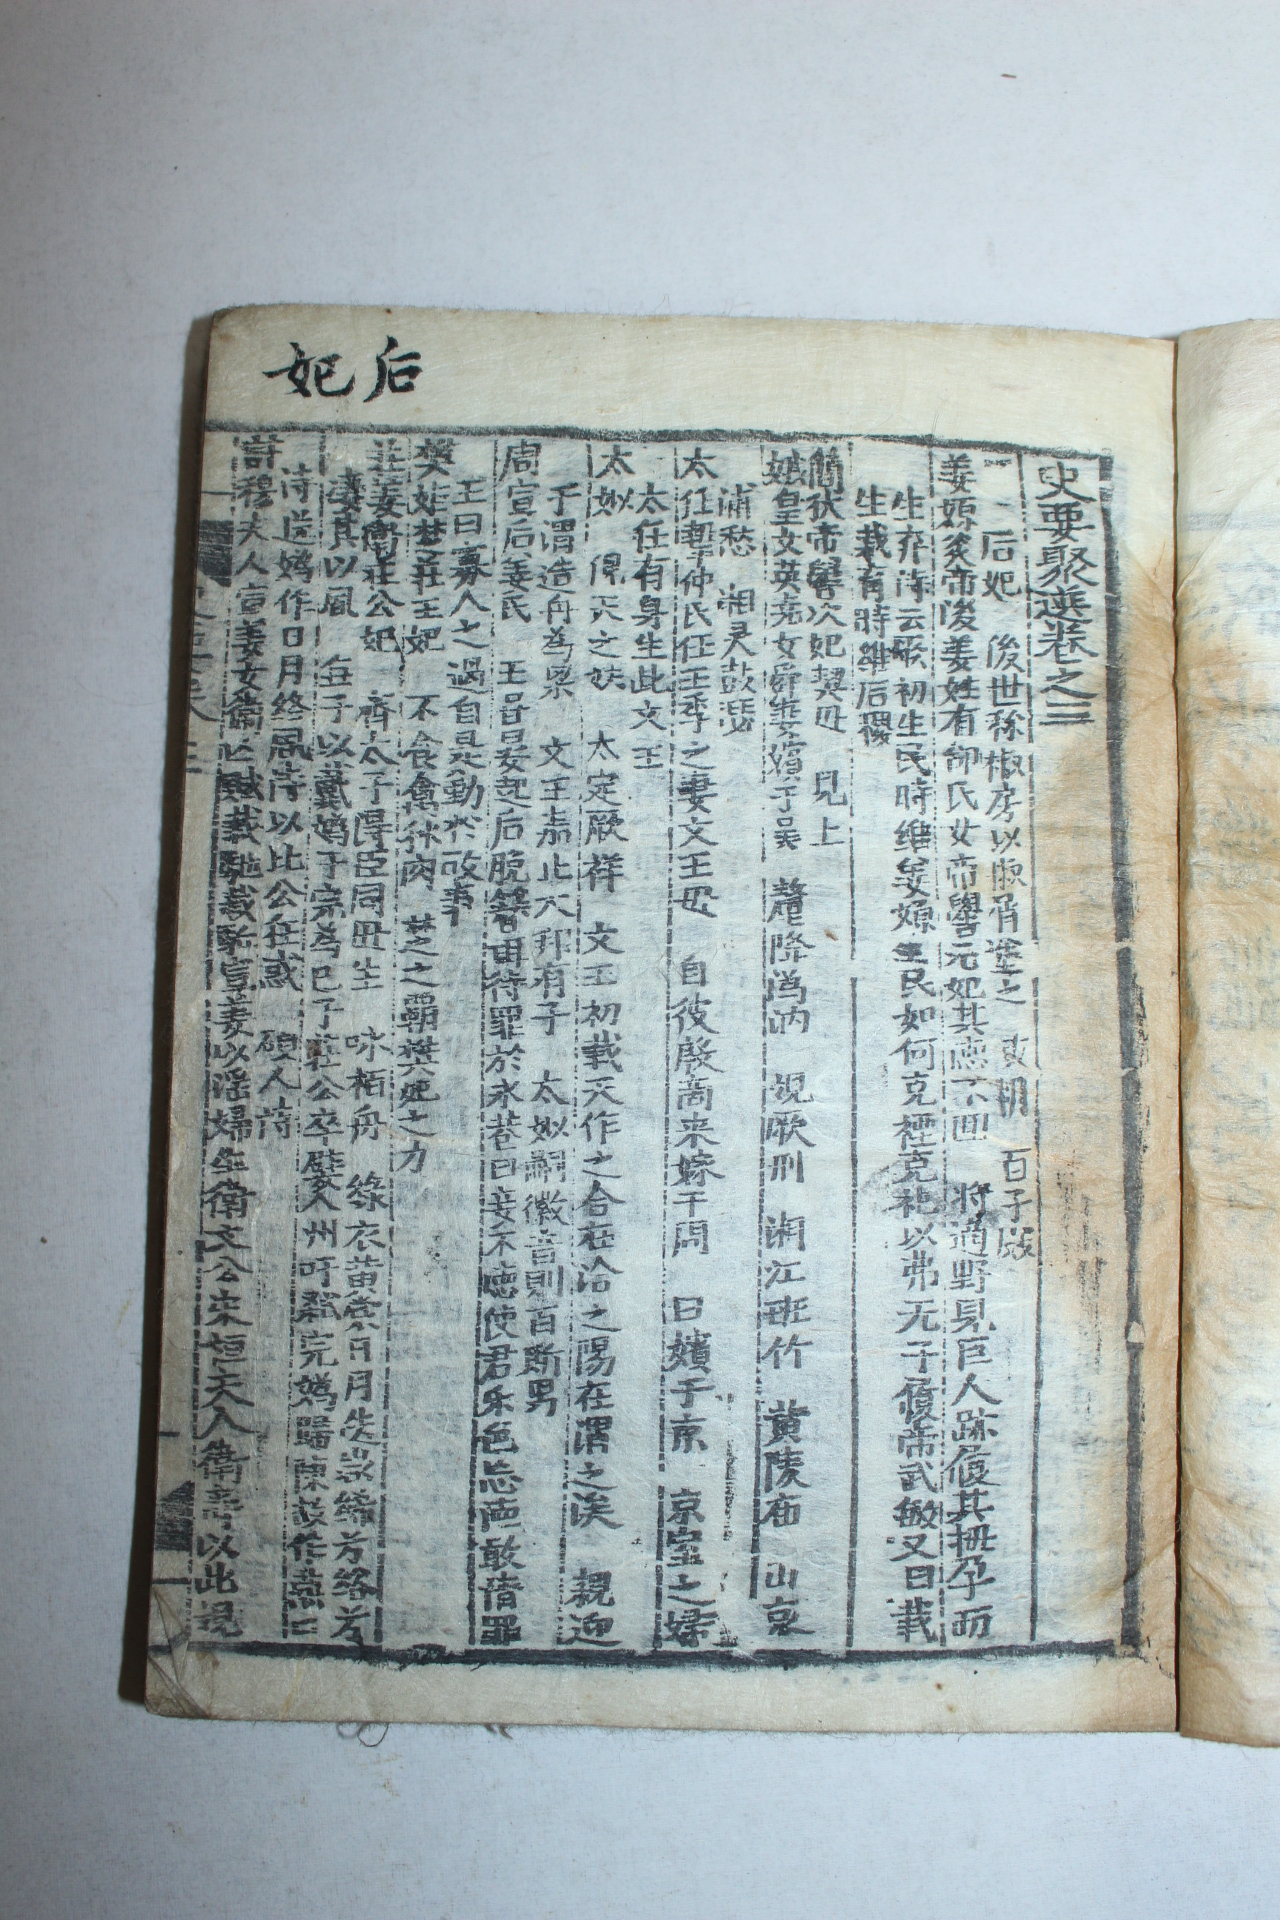 后妃
史要聚選卷之三
后妃 後世稱椒房以椒屑塗之 百子殿
姜嫄炎帝後姜姓有邰氏女帝嚳元妃其德不回 將適野見巨人跡履其拇孕而
生弃 詩云厥初生民時維姜嫄生民如何克禋克祀以弗无子履帝武敏又曰載
生載育時維后稷
簡狄帝嚳次妃契母 見上
娥皇女英堯女舜妻嬪于吴 釐降溈汭 覌厥刑 湘江班竹 黄陵庙 山哀
浦愁 湘灵鼓瑟
太任摯仲氏任王季之妻文王母 自彼殷啇来嫁于周 曰嬪于京 京室之婦
太任有身生此文王
太姒 俔天之妹 文定厥祥 文王初載天作之合在洽之陽在渭之涘 親迎
于渭造舟為梁 文王嘉止大邦有子 太姒嗣徽音則百斯男
周宣后姜氏 王甞晏起后脫簪珥待罪於永巷曰妾不德使君乐色忘德敢請罪
王曰寡人之過自是勤於政事
樊姬楚莊王妃 不食禽獣肉 楚之覇樊妃之力
莊姜衛莊公妃 齊太子得臣同母生 咏栢舟 綠衣黄
凄其以風 无子以戴嬀子完為己子莊公卒嬖人州吁弑完嬀歸陳莊作燕
詩送嬀作日月終風詩以比公狂惑 碩人詩
許穆夫人宣姜女衛亡賦載馳載駈宣姜以滛婦生衛文公宋桓夫人衛壽以此覌